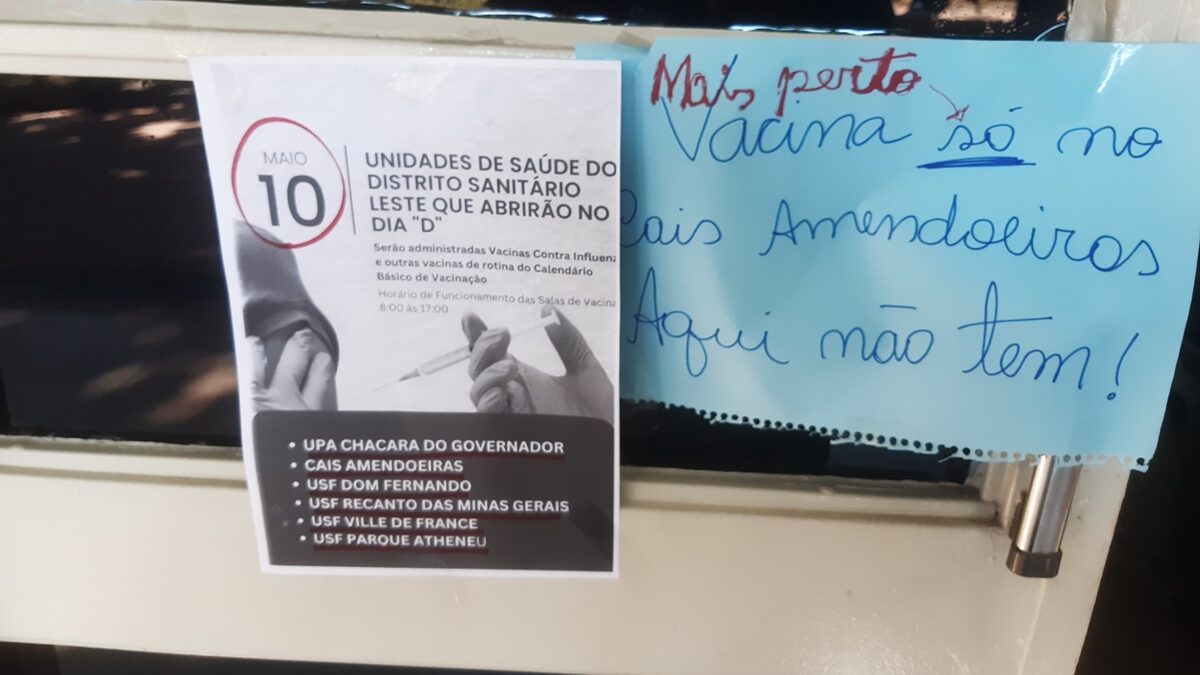 MAIO
10
UNIDADES DE SAÚDE DO
DISTRITO SANITÁRIO
LESTE QUE ABRIRÃO NO
DIA "D"
Serão administradas Vacinas Contra Influen
e outras vacinas de rotina do Calendário
Básico de Vacinação
Horário de Funcionamento das Salas de Vacina
8:00 às 17:00
• UPA CHACARA DO GOVERNADOR
• CAIS AMENDOEIRAS
• USF DOM FERNANDO
• USF RECANTO DAS MINAS GERAIS
• USF VILLE DE FRANCE
• USF PARQUE ATHENEU
Mais perto
Vacina só no
Cais Amendoeiras
Aqui não tem!